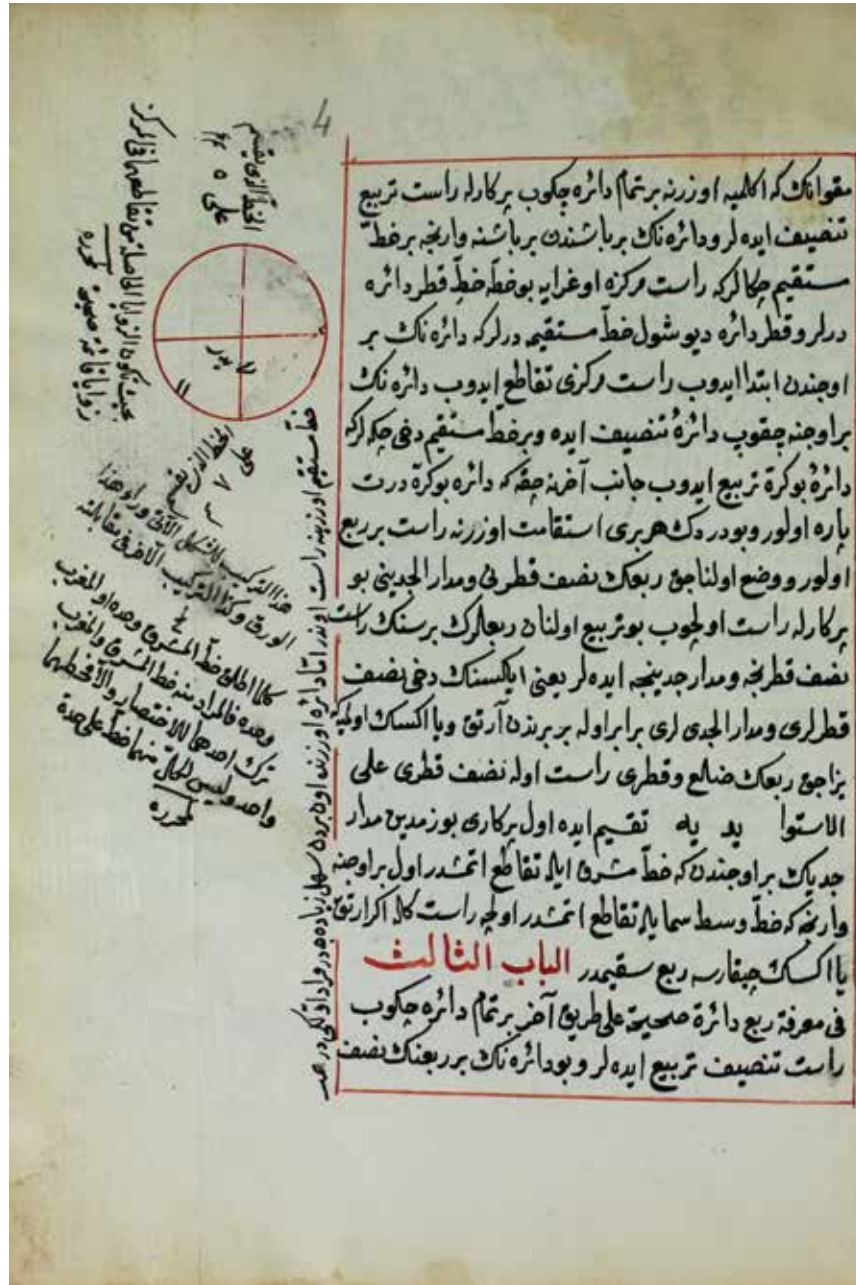 4
مقوانك كه اكلميه اوزرنه بر تمام دائره چكوب پركارله راست تربيع
تنصيف ايده لر و دائره نك بر باشندن بر باشنه وارنجه بر خطّ
مستقيم چكالر كه راست مركزه اوغرايه بو خطّه خطّ قطر دائره
درلر و قطر دائره ديو شول خطّ مستقيمه درلر كه دائره نك بر
اوجندن ابتدا ايدوب راست مركزى تقاطع ايدوب دائره نك
بر اوجنه چقوب دائرۀ تنصيف ايده و بر خطّ مستقيم دخى چكه لر كه
دائرۀ بو كرة تربيع ايدوب جانب آخرنه چقه كه دائره بو كرة درت
پاره اولور و بو دردك هر برى استقامت اوزرنه راست بر ربع
اولور و وضع اولناجق ربعك نصف قطرنى و مدار الجدينى بو
پركارله راست اولچوب بو تربيع اولنان ربعلرك برسنك راست
نصف قطرنجه و مدار جدينجه ايده لر يعنى ايكيسنك دخى نصف
قطرلرى و مدار الجدى لرى برابر اوله بر برندن آرتق و يا اكسك اولميه
يزاجق ربعك ضلع و قطرى راست اوله نصف قطرى على
الاستوا يد يه تقسيم ايده اول پركارى بوزمدين مدار
جديك بر اوجندن كه خطّ مشرق ايله تقاطع اتمشدر اول بر اوجنه
وارنجه كه خطّ وسط سما ايله تقاطع اتمشدر اولچه راست كله اكر ارتق
يا اكسك چيقارسه ربع سقيمدر الباب الثالث
فى معرفة ربع دائرة صحيحة على طريق آخر بر تمام دائره چكوب
راست تنصيف تربيع ايده لر و بو دائره نك بر ربعنك نصف
الخطّ الذى يقسم
على ٥
بحيث تكون الزوايا الحاصلة من تقاطعهما فى المركز
زوايا قائمة صحيحة محرره
الخط الذى
٧
هذا التركيب للشكل الآتى وراء هذا
الورق وكذا التركيب الآخر فى مقابلته
كلما اطلق خطّ المشرق وحده او المغرب
وحده فالمراد منه خط المشرق والمغرب
ترك احدهما للاختصار والآ فخطهما
واحد وليس لكلّ منهما خطّ على حدة
محرره
خط مستقيم اوزرينه راست اوندر امّا دائره اوزرنه اون بردن سهل زياده در